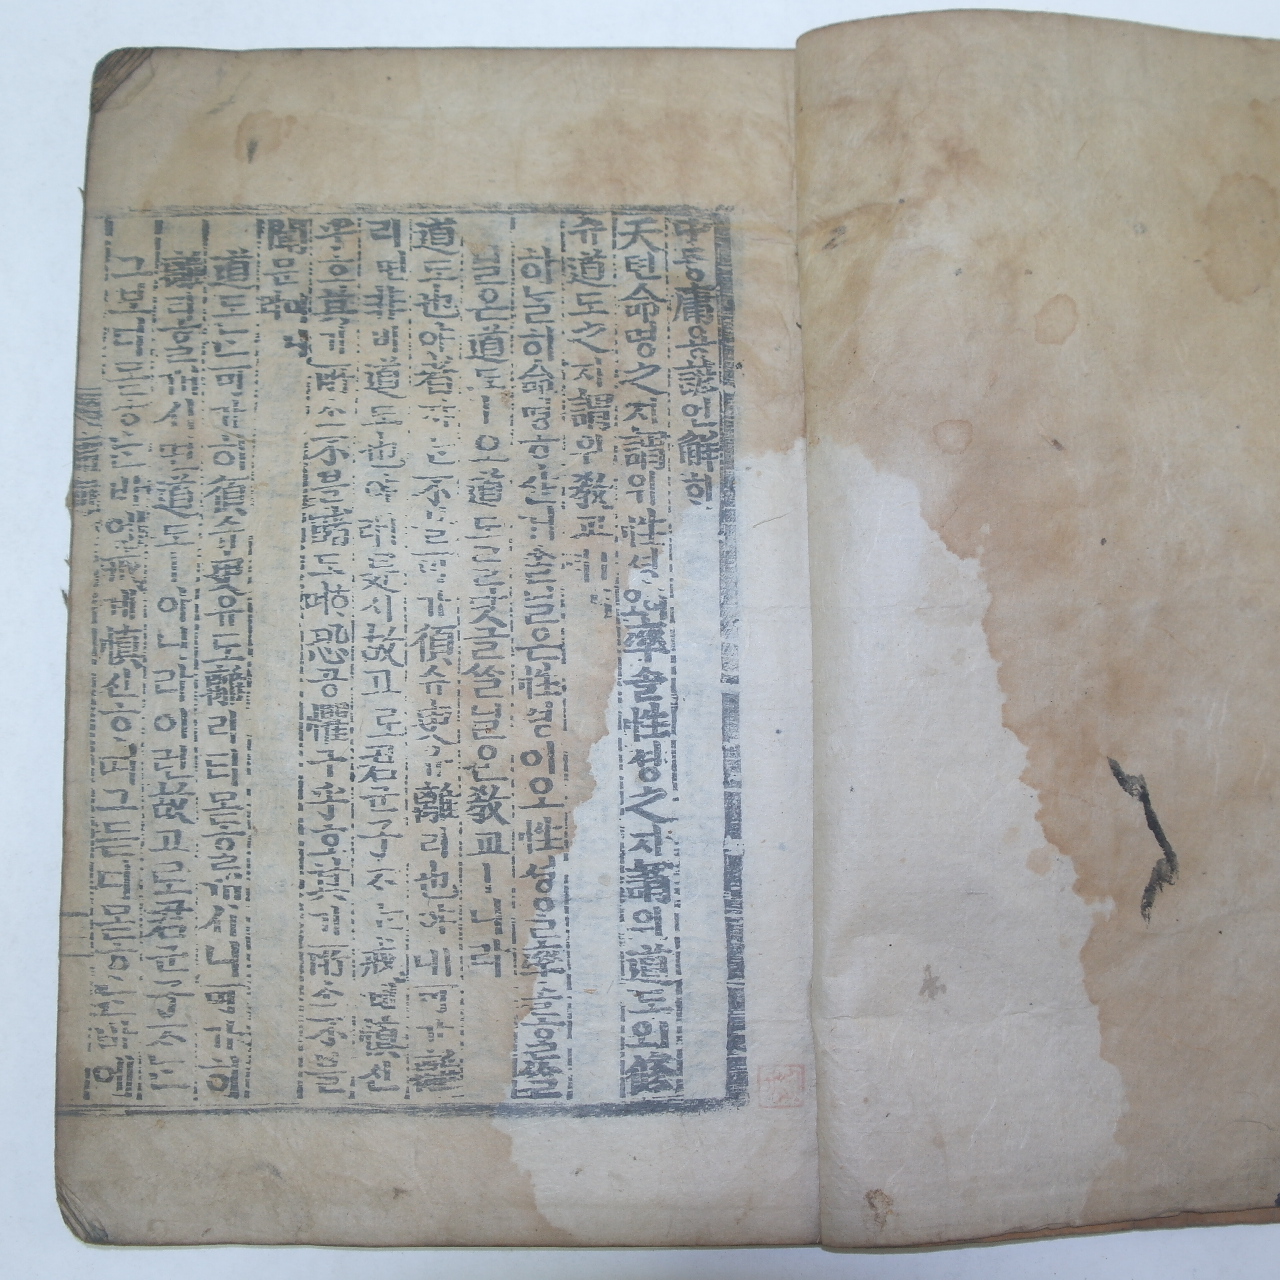 中듕庸용諺언解ᄒᆡ
天텬命명之지謂위性셩이오率솔性셩之지謂위道도ㅣ오修
슈道도之지謂위敎교ㅣ니라
하ᄂᆞᆯ히命명ᄒᆞ샨거ᄉᆞᆯ닐온性셩이오性셩을率솔홈을
닐온道도ㅣ오道도ᄅᆞᆯ닷글ᄊᆞᆯ닐온敎교ㅣ니라
道도也야者쟈ᄂᆞᆫ不블可가須슈臾유離리也야ㅣ니可가離
리면非비道도也야ㅣ라是시故고로君군子ᄌᆞᄂᆞᆫ戒계愼신
乎호其기所소不블睹도ᄒᆞ며恐공懼구乎호其기所소不블
聞문이니라
道도ᄂᆞᆫ可가히須슈臾유도離리티몯ᄒᆞᆯ꺼시니可가히
離리ᄒᆞᆯ꺼시면道도ㅣ아니라이런故고로君군子ᄌᆞᄂᆞᆫ
그보디몯ᄒᆞᄂᆞᆫ바애戒계愼신ᄒᆞ며그듣디몯ᄒᆞᄂᆞᆫ바애